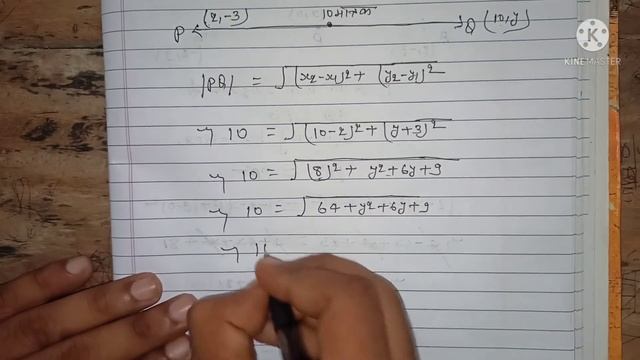 P (2,-3) Q (10,y)
|PQ| = √(x₂-x₁)² + (y₂-y₁)²
10 = √(10-2)² + (y+3)²
10 = √(8)² + y²+6y+9
10 = √64+y²+6y+9
KINEMASTER